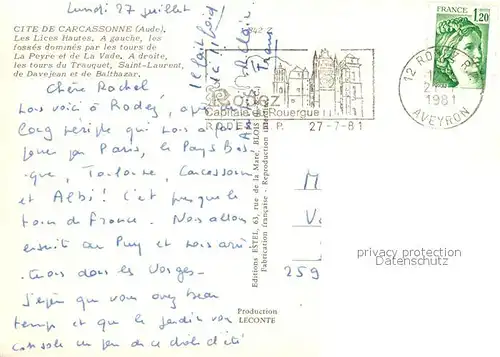 Lundi 27 juillet
CITE DE CARCASSONNE (Aude).
Les Lices Hautes. A gauche, les
fossés dominés par les tours de
La Peyre et de La Vade. A droite,
les tours du Trauquet, Saint-Laurent,
de Davejean et de Balthazar.
Chère Rachel,
Nous voici à Rodez, après
long périple qui nous a
par Paris, le Pays Bas-
que, Toulouse, Carcassonne
et Albi! C'est presque le
tour de France. Nous allons
ensuite au Puy et nous arri-
dans les Vosges-
J'espère que vous avez beau
temps et que le jardin vous
console un peu de ce drôle d'été
il fait froid
ici
RODEZ
Capitale du Rouergue
RODEZ R.P. 27-7-81
Editions ESTEL, 63, rue de la Mare, BLOIS
Fabrication française - Reproduction interdite
Production
LECONTE
FRANCE
1,20
12 RODEZ R.P.
1981
AVEYRON
M
V
259
privacy protection
Datenschutz